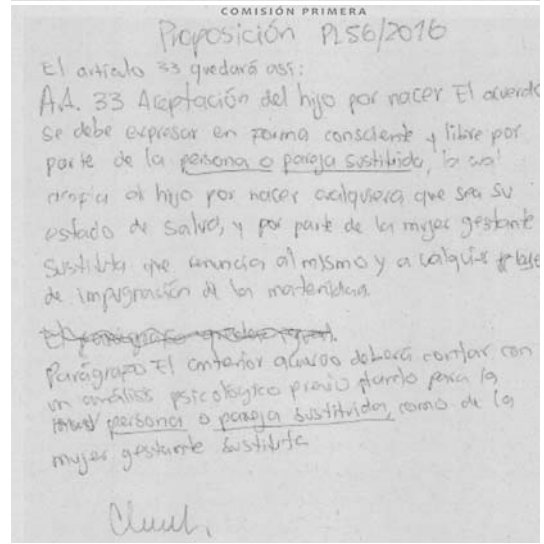 COMISIÓN PRIMERA
Proposición PL56/2016
El artículo 33 quedará así:
A.A. 33 Aceptación del hijo por nacer El acuerdo
se debe expresar en forma consciente y libre por
parte de la persona o pareja sustituida, la cual
acepta al hijo por nacer cualquiera que sea su
estado de salud, y por parte de la mujer gestante
sustituta que renuncia al mismo y a cualquier
de impugnación de la maternidad.
Parágrafo El anterior acuerdo deberá contar con
un análisis psicológico previo para la
persona o pareja sustituida, como de la
mujer gestante sustituta